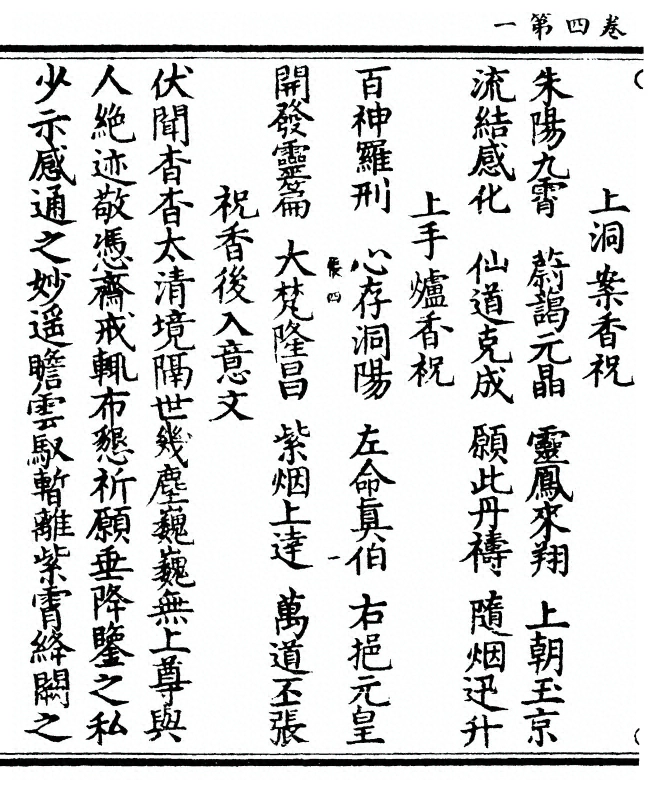 卷四第一
上洞案香祝
朱陽九霄 蔚藹元晶 靈鳳來翔 上朝玉京
流結感化 仙道克成 願此丹禱 隨烟迅升
上手爐香祝
百神羅列 心存洞陽 左命真伯 右挹元皇
開發靈篇 大梵隆昌 紫烟上達 萬道丕張
祝香後入意文
伏聞杳杳太清境隔世幾塵巍巍無上尊與
人絶迹敬憑齋戒輒布懇祈願垂降鑒之私
少示感通之妙遥瞻雲馭暫離紫霄絳闕之